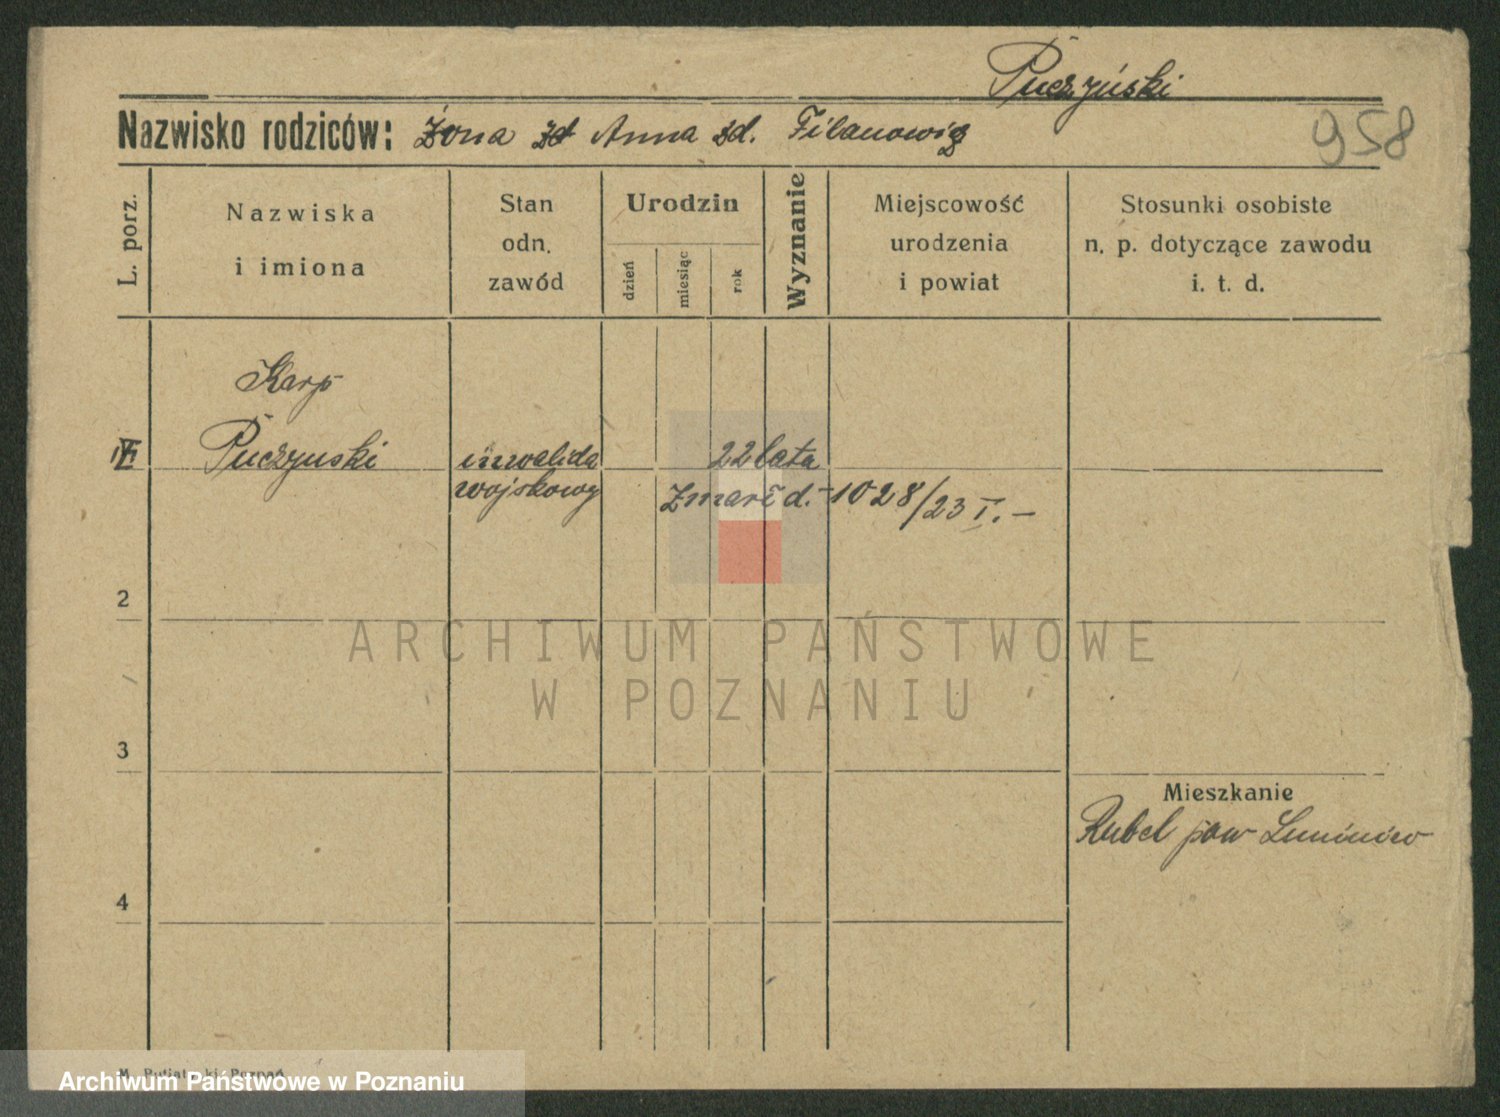 Puczyński
958
Nazwisko rodziców: Żona zd Anna zd. Filanowicz
L. porz.
Nazwiska i imiona
Stan odn. zawód
Urodzin
dzień
miesiąc
rok
Wyznanie
Miejscowość urodzenia i powiat
Stosunki osobiste n. p. dotyczące zawodu i. t. d.
Karp
Puczynski inwalida 22 lata
wojskowy Zmarł d. - 1028/23 I. -
2
ARCHIWUM PAŃSTWOWE
W POZNANIU
3
Mieszkanie
Rubel pow
4
Poznań
Archiwum Państwowe w Poznaniu